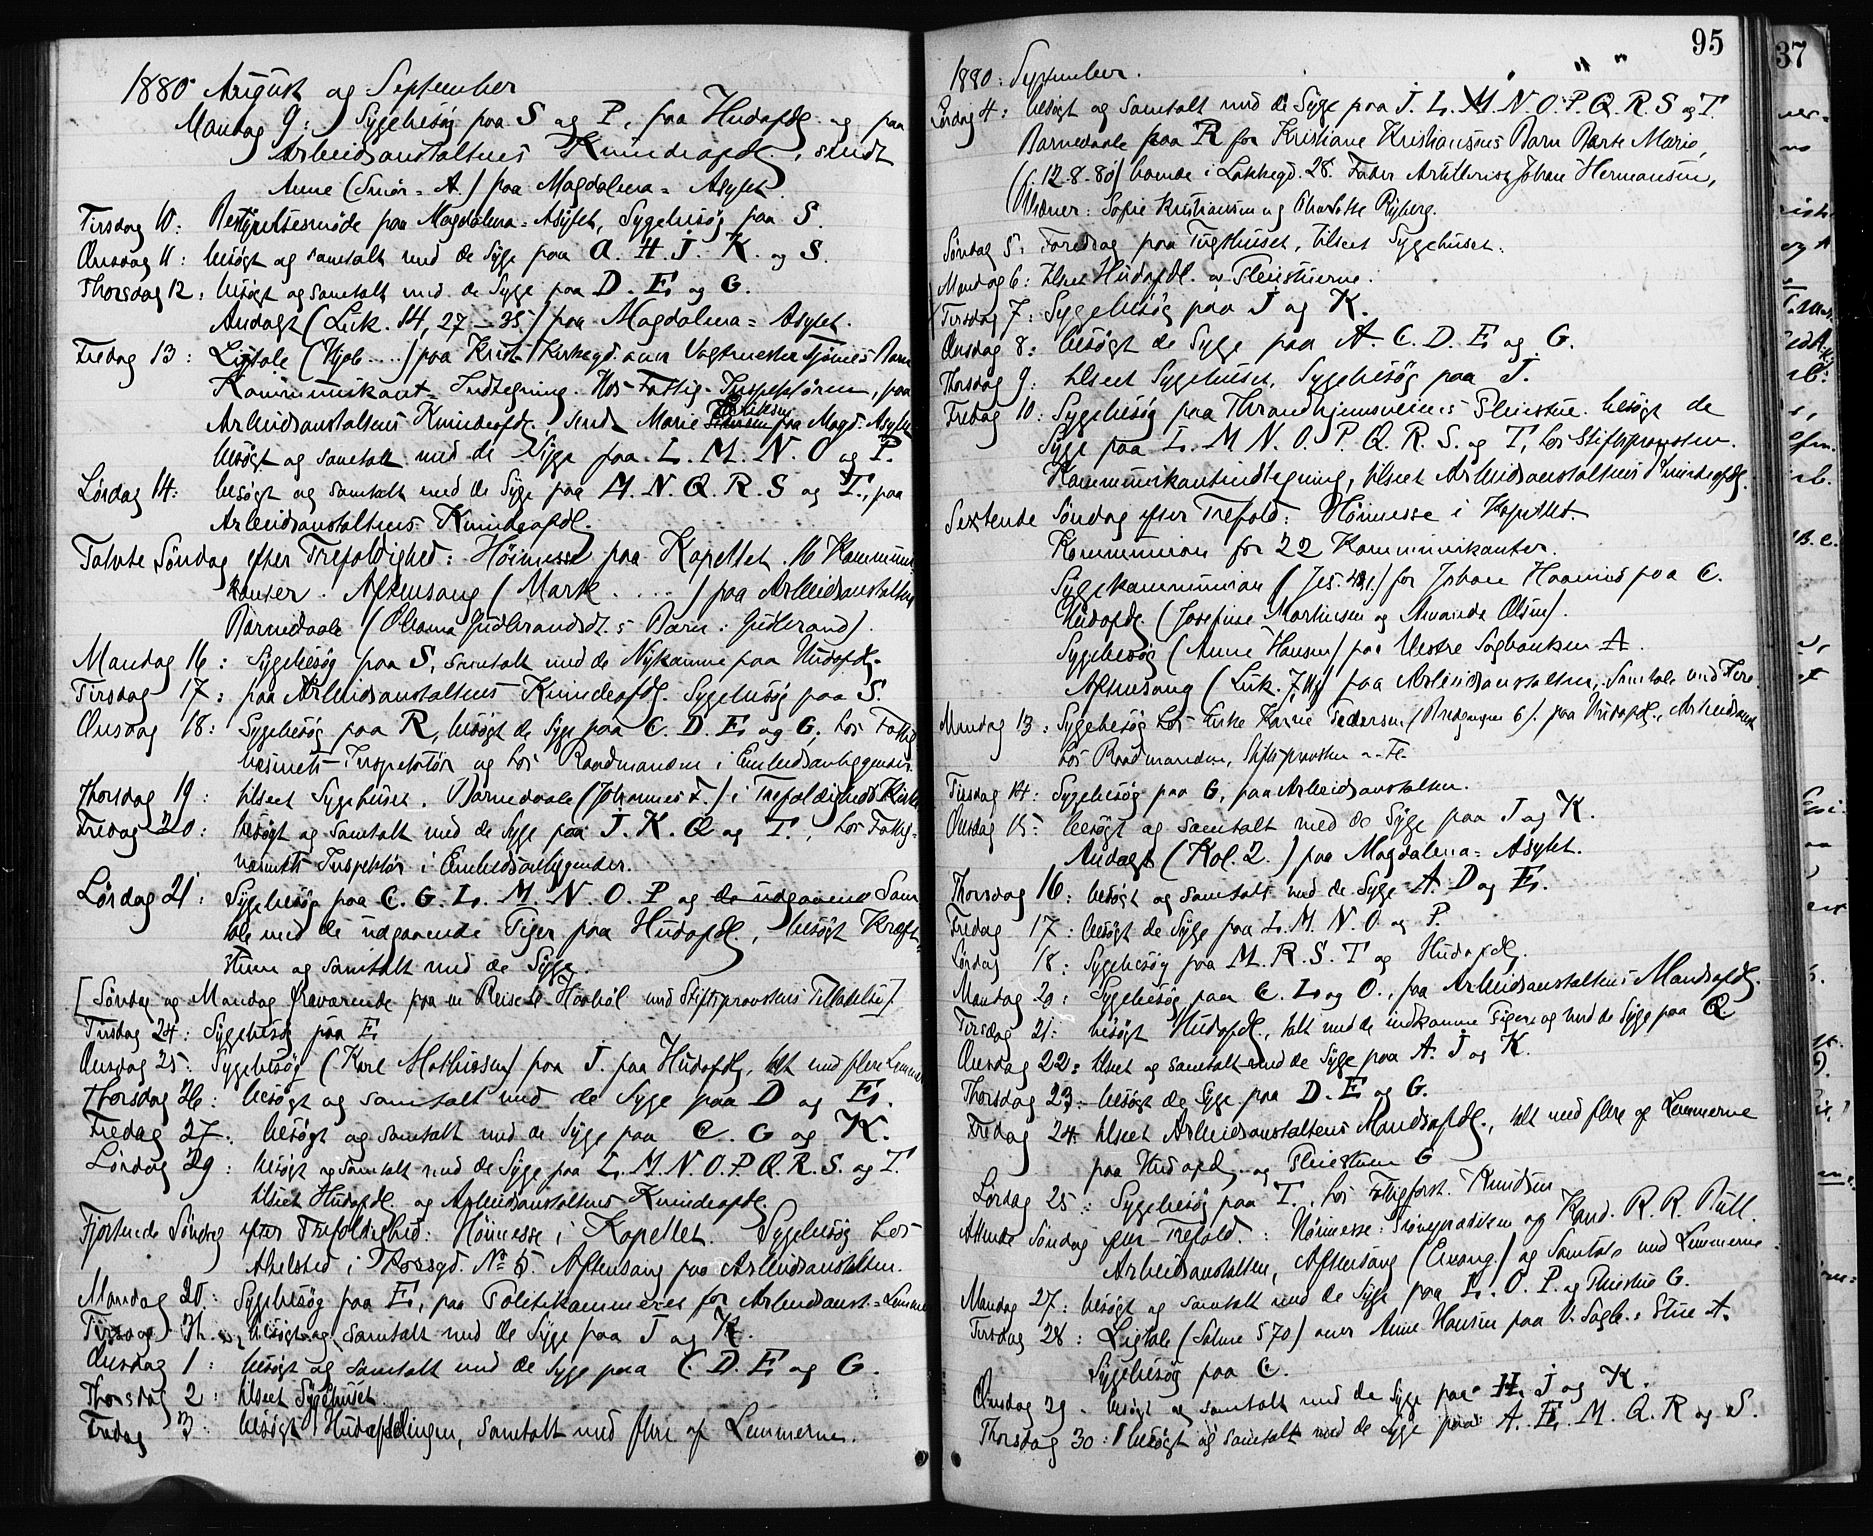 1880 August og September
Mandag 9: Sygebesøg paa S og P, paa Hudafdl. og paa
Arbeidsanstaltens Kvindeafdl., sendt
Anne (Smør-A.) paa Magdalena-Asylet
Tirsdag 10: Bestyrelsesmøde paa Magdalena-Asylet, Sygebesøg paa S.
Onsdag 11: besøgt og samtalt med de Syge paa A. H. J. K. og S.
Thorsdag 12: besøgt og samtalt med de Syge paa D. E. og G.
Andagt (Luk. 14, 27-35) paa Magdalena-Asylet.
Fredag 13: Ligtale (Hiob ....) paa Krist Kirkegd. over Vagtmester Tjømes Barn
Kommunikant-Indtegning. Hos Fattig-Inspektøren, paa
Arbeidsanstaltens Kvindeafdl., sendt Marie paa Magd. Asylet
besøgt og samtalt med de Syge paa L. M. N. O og P.
Lørdag 14: besøgt og samtalt med de Syge paa M. N. Q. R. S og T., paa
Arbeidsanstaltens Kvindeafdl.
Tolvte Søndag efter Trefoldighed: Høimesse paa Kapellet. 16 Kommuni-
kanter. Aftensang (Mark. ....) paa Arbeidsanstalten
Barnedaab (Oleana Gudbrandsdt.s Barn: Gudbrand).
Mandag 16: Sygebesøg paa S, samtalt med de Nykomne paa Hudafdl.
Tirsdag 17: paa Arbeidsanstaltens Kvindeafdl. Sygebesøg paa S.
Onsdag 18: Sygebesøg paa R, besøgt de Syge paa C. D. E. og G., hos Fattig-
væsnets-Inspektør og hos Raadmanden i Embedsanliggender.
Thorsdag 19: tilseet Sygehuset. Barnedaab (Johannes F.) i Trefoldigheds Kirke
Fredag 20: besøgt og samtalt med de Syge paa J. K. Q og T., hos Fattig-
væsnets Inspektør i Embedsanliggender.
Lørdag 21: Sygebesøg paa C. G. L. M. N. O. P og de udgaaende Sam-
tale med de udgaaende Piger paa Hudafdl., besøgt Kræft-
stuen og samtalt med de Syge.
[Søndag og Mandag fraværende paa en Reise til Hovhöl med Stiftsprovstens Tilladelse].
Tirsdag 24: Sygebesøg paa E
Onsdag 25: Sygebesøg (Karl Mathiesen) paa J. paa Hudafdl, talt med flere Lemmer
Thorsdag 26: besøgt og samtalt med de Syge paa D og E.
Fredag 27: besøgt og samtalt med de Syge paa C. G og K.
Lørdag 29: besøgt og samtalt med de Syge paa L. M. N. O. P. Q. R. S. og T.
tilseet Hudafdl. og Arbeidsanstaltens Kvindeafdl.
Fjortende Søndag efter Trefoldighed: Høimesse i Kapellet. Sygebesøg hos
i Thorsgd. No 5. Aftensang paa Arbeidsanstalten.
Mandag 30: Sygebesøg paa E, paa Politikammeret for Arbeidsanst-Lemmer
Tirsdag 31: besøgt og samtalt med de Syge paa J og K.
Onsdag 1: besøgt og samtalt med de Syge paa C. D. E og G.
Thorsdag 2: tilseet Sygehuset.
Fredag 3: besøgt Hudafdelingen, samtalt med flere af Lemmerne.
95
1880: September. " "
Lørdag 4: besøgt og samtalt med de Syge paa J. L. M. N. O. P. Q. R. S og T.
Barnedaab paa R for Kristiane Kristiansens Barn Dorte Marie,
(f. 12-8-80) boende i Lakkegd. 28. Fader Artillerist Johan Hermansen,
Vidner: Sofie Kristiansen og Charlotte Ryberg.
Søndag 5: Foredrag paa Tugthuset, tilseet Sygehuset.
Mandag 6: tilseet Hudafdl. og Pleiestuerne.
Tirsdag 7: Sygebesøg paa J og K.
Onsdag 8: besøgt de Syge paa A. C. D. E. og G.
Thorsdag 9: tilseet Sygehuset, Sygebesøg paa J.
Fredag 10: Sygebesøg paa Thrandhjemsveiens Pleiestue. besøgt de
Syge paa L. M. N. O. P. Q. R. S. og T, hos Stiftsprovsten.
Kommunikantindtegning, tilseet Arbeidsanstaltens Kvindeafdl.
Sextende Søndag efter Trefold: Høimesse i Kapellet.
Kommunion for 22 Kommunikanter.
Sygekommunion (Jes. 43,1.) for Johan paa C.
Hudafdl. (Josefine Martinsen og Amanda Olsen).
Sygebesøg (Anne Hansen) paa Vestre Sogbanken A.
Aftensang (Luk. 7,) paa Arbeidsanstalten, Samtale med Flere.
Mandag 13: Sygebesøg hos Enke Karine Pedersen (Bredgangen 6). paa Hudafdl., Arbeidsanst
hos Raadmanden, Stiftsprovsten
Tirsdag 14: Sygebesøg paa G, paa Arbeidsanstalten.
Onsdag 15: besøgt og samtalt med de Syge paa J og K.
Andagt (Kol. 2.) paa Magdalena-Asylet.
Thorsdag 16: besøgt og samtalt med de Syge A. D og E.
Fredag 17: besøgt de Syge paa L. M. N. O og P.
Lørdag 18: Sygebesøg paa M. R. S. T og Hudafdl.
Mandag 20: Sygebesøg paa C. L. og O., paa Arbeidsanstaltens Mandsafdl.
Tirsdag 21: besøgt Hudafdl., talt med de indkomne Piger og med de Syge paa Q
Onsdag 22: tilseet og samtalt med de Syge paa A. J og K.
Thorsdag 23: besøgt de Syge paa D. E og G.
Fredag 24: tilseet Arbeidsanstaltens Mandsafdl., talt med flere af Lemmerne
paa Hudafdl. og Pleiestuen G
Lørdag 25: Sygebesøg paa T., hos Fattigforst. Knudsen
Attende Søndag efter Trefold.: Høimesse: Prøveprædiken af Kand. R. R. Bull.
Arbeidsanstalten, Aftensang (Evang.) og Samtale med Lemmerne.
Mandag 27: besøgt og samtalt med de Syge paa L. O. P. og Pleiestue G.
Tirsdag 28: Ligtale (Salme 570) over Anne Hansen paa V. Sagb.s Stue A.
Sygebesøg paa C.
Onsdag 29: besøgt og samtalt med de Syge paa H. J og K.
Thorsdag 30: besøgt og samtalt med de Syge paa A. E. M. Q. R og S.
37